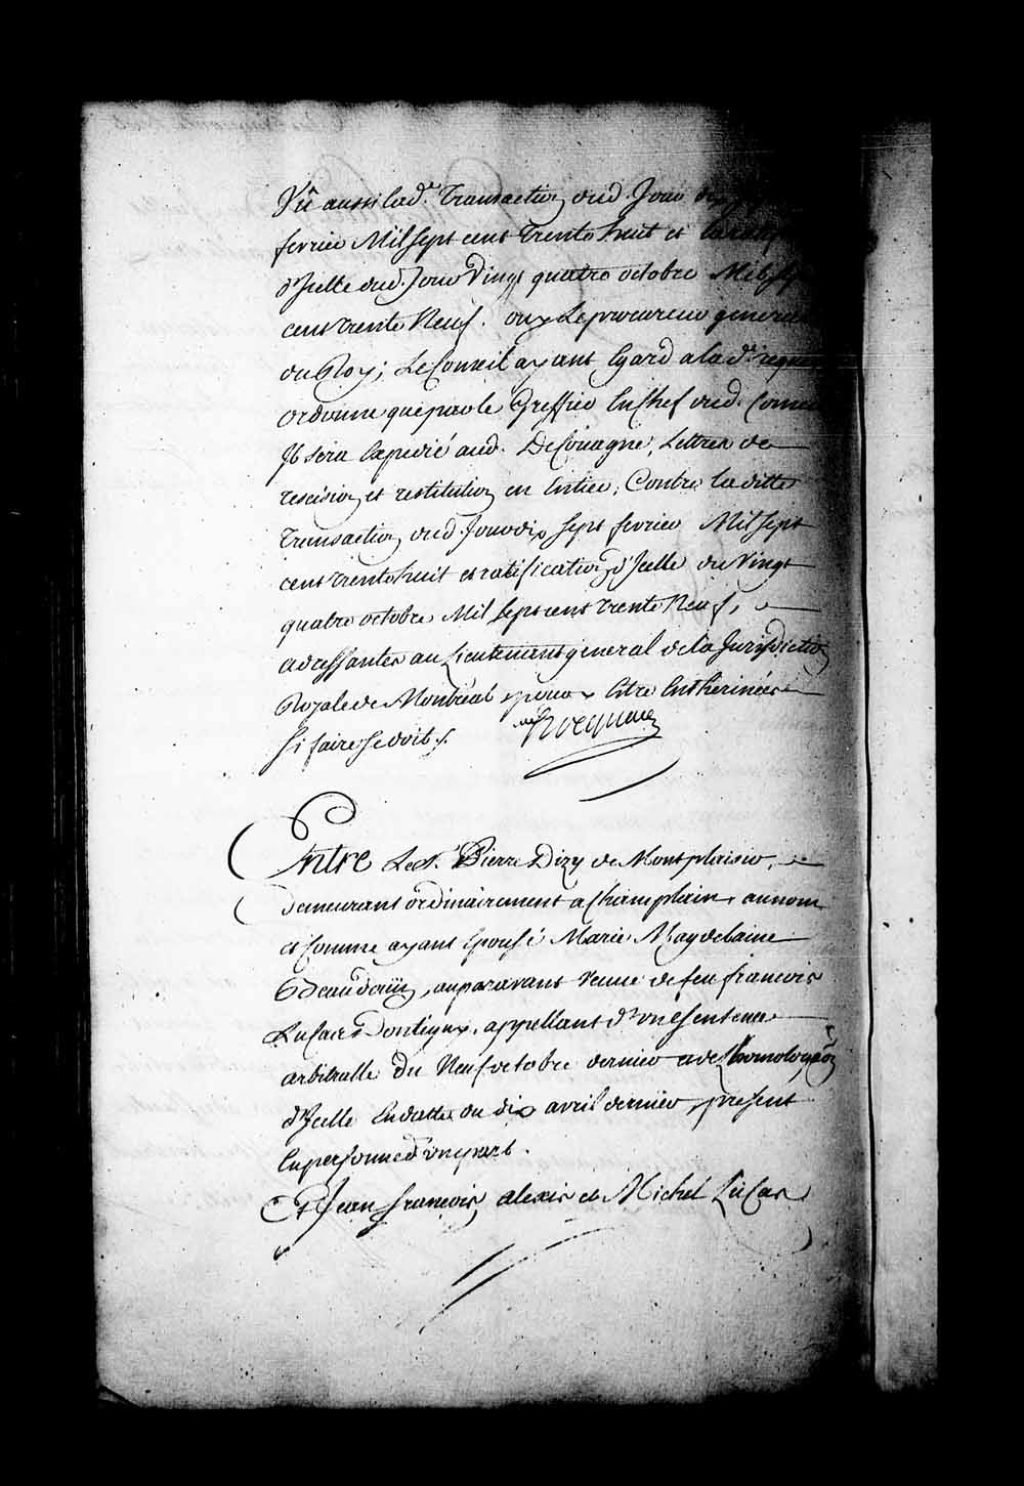 Vû aussi lad.e Transaction dud. Jour dix
fevrier Mil Sept cent Trente huit et la ratif
d'Icelle dud. Jour Vingt quatre octobre Mil Sept
cent trente Neuf. ouy Le procureur general
du Roy; Le Conseil ayant Egard a la d.e requ
ordonne que par le Greffier En Chef dud. Conseil
Il sera Expedié aud. De Couagne, Lettres de
rescision et restitution en Entier, Contre la ditte
Transaction dud. Jour dix Sept fevrier Mil Sept
cent trente huit et ratification d'Icelle du Vingt
quatre octobre Mil Sept cent trente Neuf,
adressantes au Lieutenant general de la Jurisdiction
Royale de Montréal pour y Estre Enthérinées
Si faire Se doit ./.
hocquart
Entre Le S.r Pierre Dizy de Montplaisir,
demeurant ordinairement a Champlain, au nom
et Comme ayant Epousé Marie Magdelaine
Beaudoüin, auparavant veuve de feu francois
Lucas Dontigny, appellant d'une Sentence
arbitralle du Neuf octobre dernier et de l'homologãon
d'Icelle En datte du dix avril dernier, present
En personne d'une part.
Et Jean francois, alexis et Michel Lucas